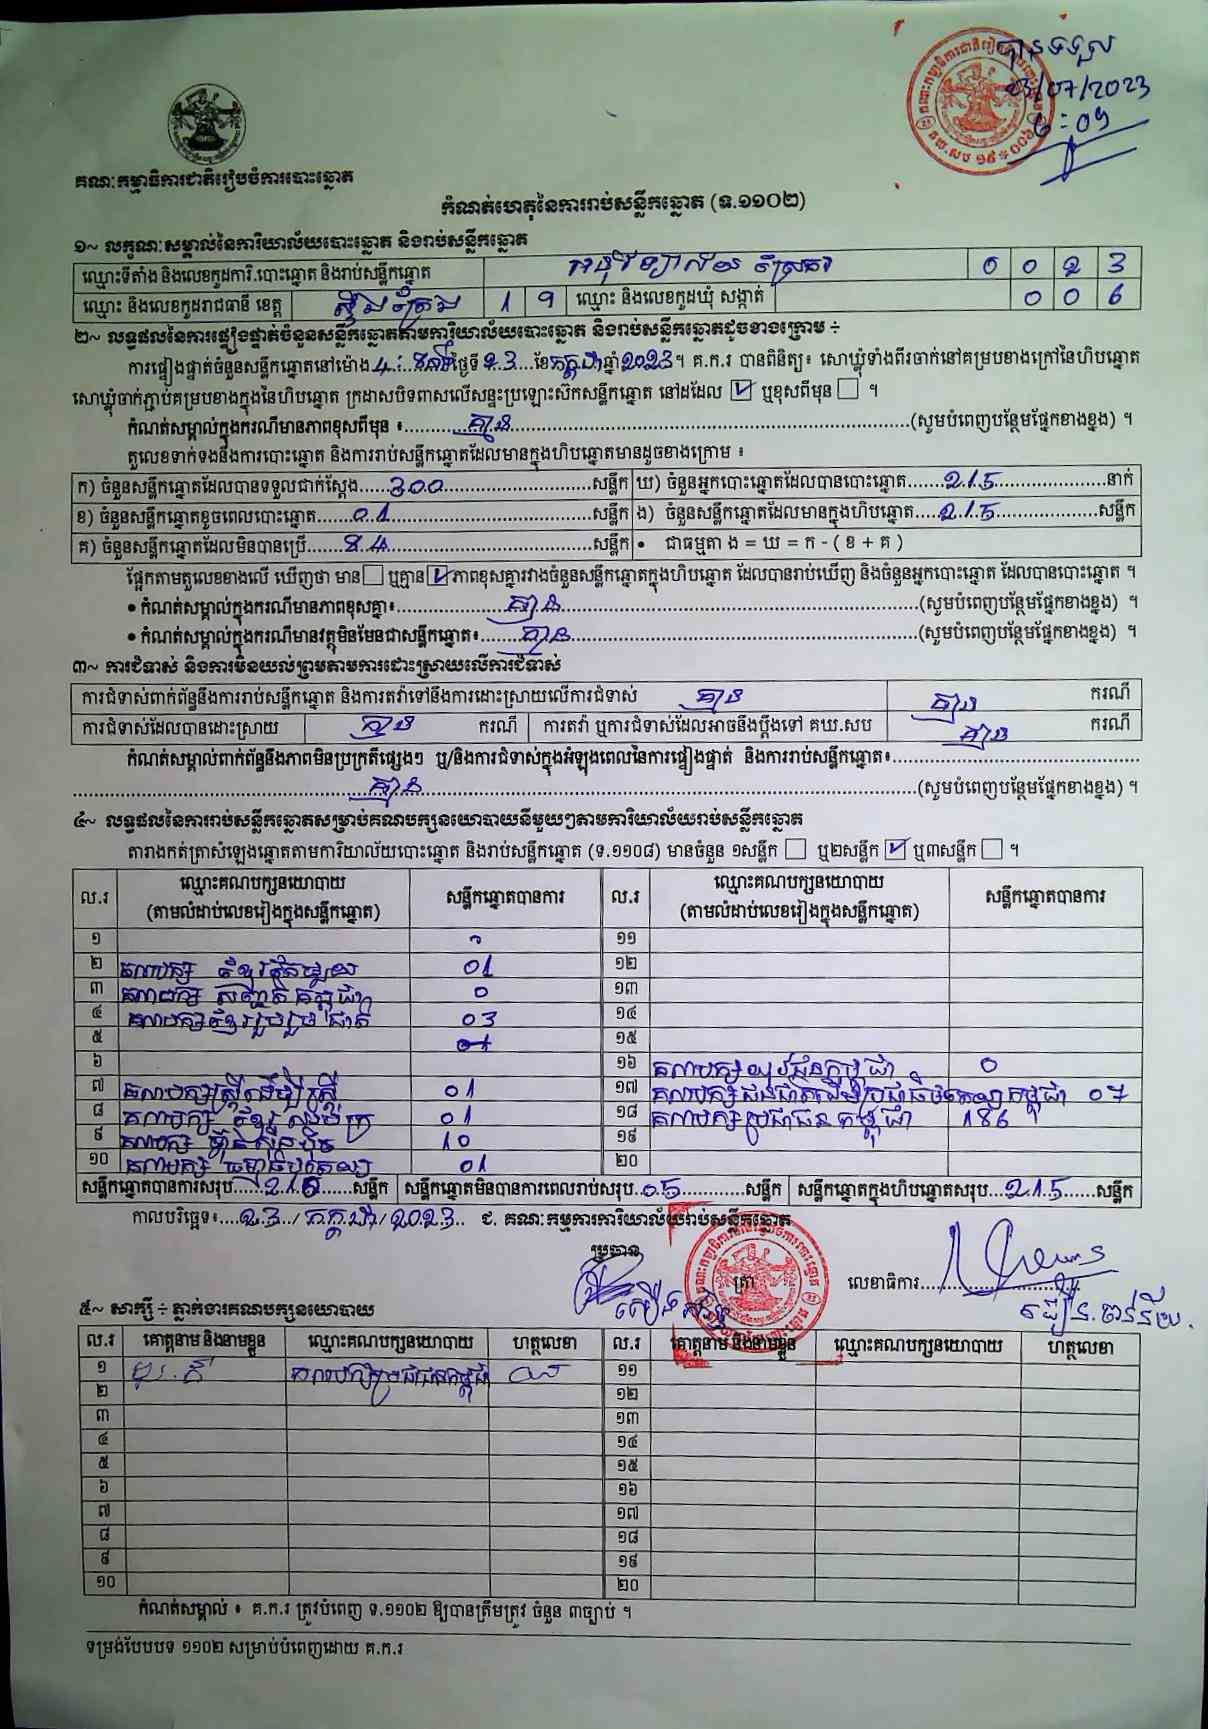 បានទទួល
/07/2023
6:09
គណៈកម្មាធិការជាតិរៀបចំការបោះឆ្នោត
កំណត់ហេតុនៃការរាប់សន្លឹកឆ្នោត (ទ.១១០២)
១~ លក្ខណៈសម្គាល់នៃការិយាល័យបោះឆ្នោត និងរាប់សន្លឹកឆ្នោត
ឈ្មោះទីតាំង និងលេខកូដការិ.បោះឆ្នោត និងរាប់សន្លឹកឆ្នោត អនុវិទ្យាល័យ 0 0 2 3
ឈ្មោះ និងលេខកូដរាជធានី ខេត្ត ស្ទឹងត្រែង 1 9 ឈ្មោះ និងលេខកូដឃុំ សង្កាត់ 0 0 6
២~ លទ្ធផលនៃការផ្ទៀងផ្ទាត់ចំនួនសន្លឹកឆ្នោតតាមការិយាល័យបោះឆ្នោត និងរាប់សន្លឹកឆ្នោតដូចខាងក្រោម ÷
ការផ្ទៀងផ្ទាត់ចំនួនសន្លឹកឆ្នោតនៅម៉ោង 4: ថ្ងៃទី 23 ខែ កក្កដា ឆ្នាំ 2023។ គ.ក.រ បានពិនិត្យ៖ សោឃ្លុំទាំងពីរចាក់នៅគម្របខាងក្រៅនៃហិបឆ្នោត
សោឃ្លុំចាក់ភ្ជាប់គម្របខាងក្នុងនៃហិបឆ្នោត ក្រដាសបិទពាសលើសន្ទះប្រឡោះស៊កសន្លឹកឆ្នោត នៅដដែល ☑ ឬខុសពីមុន ☐ ។
កំណត់សម្គាល់ក្នុងករណីមានភាពខុសពីមុន ៖ គ្មាន (សូមបំពេញបន្ថែមផ្នែកខាងខ្នង) ។
តួលេខទាក់ទងនឹងការបោះឆ្នោត និងការរាប់សន្លឹកឆ្នោតដែលមានក្នុងហិបឆ្នោតមានដូចខាងក្រោម ៖
ក) ចំនួនសន្លឹកឆ្នោតដែលបានទទួលជាក់ស្តែង 300 សន្លឹក ឃ) ចំនួនអ្នកបោះឆ្នោតដែលបានបោះឆ្នោត 215 នាក់
ខ) ចំនួនសន្លឹកឆ្នោតខូចពេលបោះឆ្នោត 01 សន្លឹក ង) ចំនួនសន្លឹកឆ្នោតដែលមានក្នុងហិបឆ្នោត 215 សន្លឹក
គ) ចំនួនសន្លឹកឆ្នោតដែលមិនបានប្រើ 84 សន្លឹក • ជាធម្មតា ង = ឃ = ក - ( ខ + គ )
ផ្អែកតាមតួលេខខាងលើ ឃើញថា មាន ☐ ឬគ្មាន ☑ ភាពខុសគ្នារវាងចំនួនសន្លឹកឆ្នោតក្នុងហិបឆ្នោត ដែលបានរាប់ឃើញ និងចំនួនអ្នកបោះឆ្នោត ដែលបានបោះឆ្នោត ។
• កំណត់សម្គាល់ក្នុងករណីមានភាពខុសគ្នា៖ គ្មាន (សូមបំពេញបន្ថែមផ្នែកខាងខ្នង) ។
• កំណត់សម្គាល់ក្នុងករណីមានវត្ថុមិនមែនជាសន្លឹកឆ្នោត៖ គ្មាន (សូមបំពេញបន្ថែមផ្នែកខាងខ្នង) ។
៣~ ការជំទាស់ និងការមិនយល់ព្រមតាមការដោះស្រាយលើការជំទាស់
ការជំទាស់ពាក់ព័ន្ធនឹងការរាប់សន្លឹកឆ្នោត និងការតវ៉ាទៅនឹងការដោះស្រាយលើការជំទាស់ គ្មាន គ្មាន ករណី
ការជំទាស់ដែលបានដោះស្រាយ គ្មាន ករណី ការតវ៉ា ឬការជំទាស់ដែលអាចនឹងប្តឹងទៅ គឃ.សប គ្មាន ករណី
កំណត់សម្គាល់ពាក់ព័ន្ធនឹងភាពមិនប្រក្រតីផ្សេងៗ ឬ/និងការជំទាស់ក្នុងអំឡុងពេលនៃការផ្ទៀងផ្ទាត់ និងការរាប់សន្លឹកឆ្នោត៖
គ្មាន (សូមបំពេញបន្ថែមផ្នែកខាងខ្នង) ។
៤~ លទ្ធផលនៃការរាប់សន្លឹកឆ្នោតសម្រាប់គណបក្សនយោបាយនីមួយៗតាមការិយាល័យរាប់សន្លឹកឆ្នោត
តារាងកត់ត្រាសំឡេងឆ្នោតតាមការិយាល័យបោះឆ្នោត និងរាប់សន្លឹកឆ្នោត (ទ.១១០៨) មានចំនួន ១សន្លឹក ☐ ឬ២សន្លឹក ☑ ឬ៣សន្លឹក ☐ ។
ល.រ ឈ្មោះគណបក្សនយោបាយ (តាមលំដាប់លេខរៀងក្នុងសន្លឹកឆ្នោត) សន្លឹកឆ្នោតបានការ ល.រ ឈ្មោះគណបក្សនយោបាយ (តាមលំដាប់លេខរៀងក្នុងសន្លឹកឆ្នោត) សន្លឹកឆ្នោតបានការ
១ ១១
២ គណបក្ស ខ្មែរ 01 ១២
៣ គណបក្ស កម្ពុជា 0 ១៣
៤ គណបក្សខ្មែររួបរួមជាតិ 03 ១៤
៥ ១៥
៦ ១៦ គណបក្សយុវជនកម្ពុជា 0
៧ គណបក្សស្ត្រីដើម្បីស្ត្រី 01 ១៧ គណបក្ស កម្ពុជា 07
៨ គណបក្ស ខ្មែរ 01 ១៨ គណបក្សប្រជាជនកម្ពុជា 186
៩ គណបក្ស ហ៊្វុនស៊ិនប៉ិច 10 ១៩
១០ គណបក្ស 01 ២០
សន្លឹកឆ្នោតបានការសរុប 210 សន្លឹក សន្លឹកឆ្នោតមិនបានការពេលរាប់សរុប 05 សន្លឹក សន្លឹកឆ្នោតក្នុងហិបឆ្នោតសរុប 215 សន្លឹក
កាលបរិច្ឆេទ៖ 23/កក្កដា/2023 ជ. គណៈកម្មការការិយាល័យរាប់សន្លឹកឆ្នោត
ប្រធាន
ត្រា លេខាធិការ
៥~ សាក្សី ÷ ភ្នាក់ងារគណបក្សនយោបាយ
ល.រ គោត្តនាម និងនាមខ្លួន ឈ្មោះគណបក្សនយោបាយ ហត្ថលេខា ល.រ គោត្តនាម និងនាមខ្លួន ឈ្មោះគណបក្សនយោបាយ ហត្ថលេខា
១ គណបក្សប្រជាជនកម្ពុជា ១១
២ ១២
៣ ១៣
៤ ១៤
៥ ១៥
៦ ១៦
៧ ១៧
៨ ១៨
៩ ១៩
១០ ២០
កំណត់សម្គាល់ ៖ គ.ក.រ ត្រូវបំពេញ ទ.១១០២ ឱ្យបានត្រឹមត្រូវ ចំនួន ៣ច្បាប់ ។
ទម្រង់បែបបទ ១១០២ សម្រាប់បំពេញដោយ គ.ក.រ